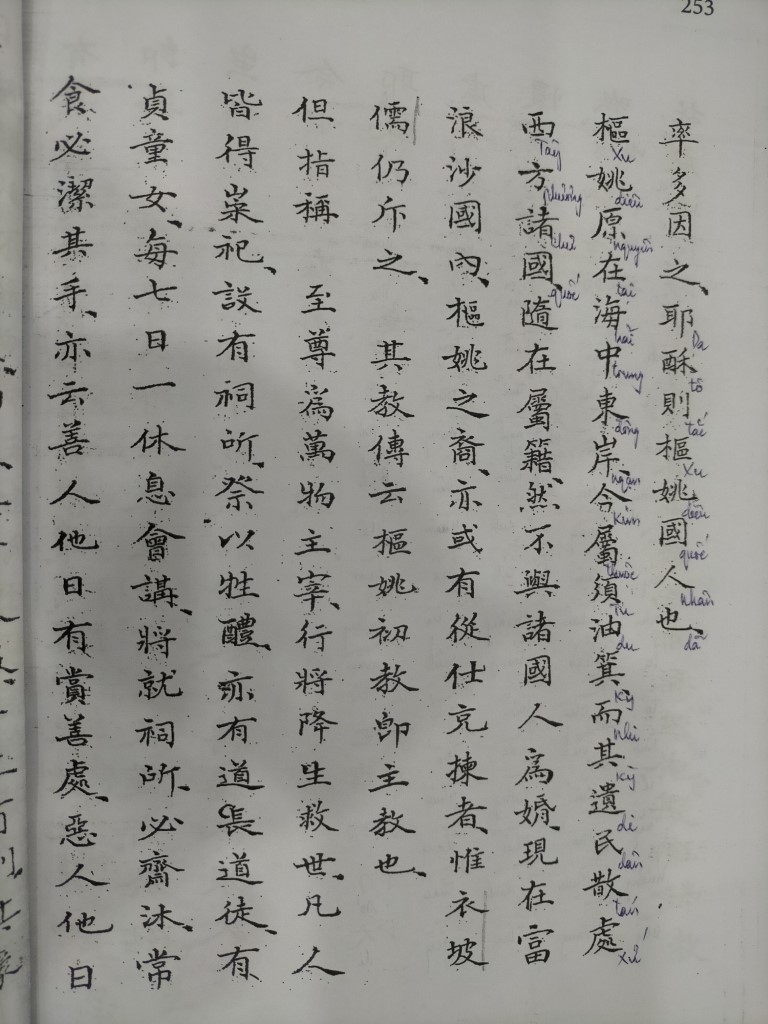 253
率多因之、耶酥則樞姚國人也、
樞姚原在海中東岸、今屬須油箕、而其遺民散處
西方諸國、隨在屬籍、然不與諸國人為婚、現在富
浪沙國內、樞姚之裔、亦或有從仕充揀者、惟衣坡
儒仍斥之、 其教傳云樞姚初教卽主教也、
但指稱 至尊為萬物主宰、行將降生救世、凡人
皆得崇祀、設有祠所、祭以牲醴、亦有道長道徒、有
貞童女、每七日一休息會講、將就祠所、必齋沐、常
食必潔其手、亦云善人他日有賞善處、惡人他日
Da tô tắc Xu diêu quốc nhân dã
Xu diêu nguyên tại hải trung đông ngạn kim thuộc tu du Kỳ nhi Kỳ di dân tán xứ
Tây phương chư quốc